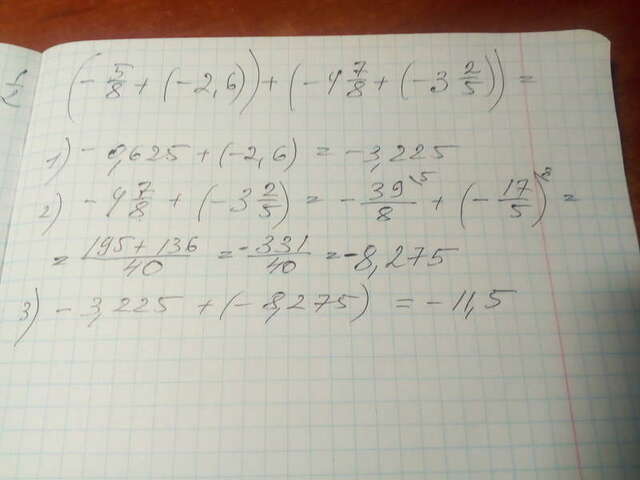 (-5/8 + (-2,6)) + (-4 7/8 + (-3 2/5)) =
1) -0,625 + (-2,6) = -3,225
2) -4 7/8 + (-3 2/5) = -39/8 ^5 + (-17/5)^8 =
= 195 + 136/40 = -331/40 = -8,275
3) -3,225 + (-8,275) = -11,5